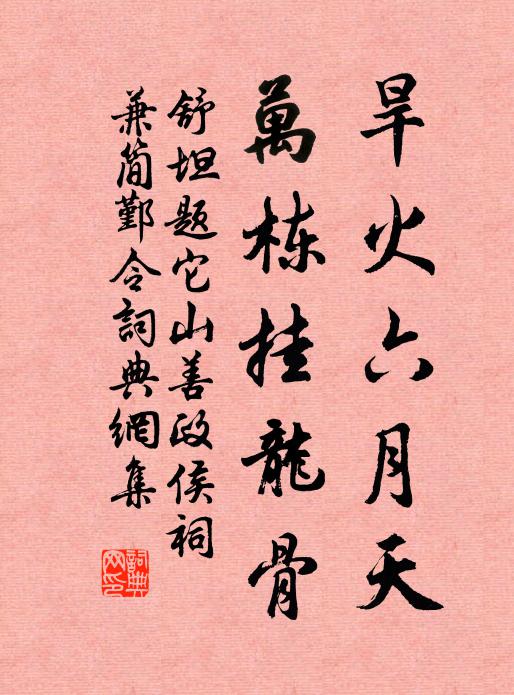 旱火六月天
萬栋挂龍骨
舒坦题它山善政侯祠
兼簡鄞令詞典網集
詞典
网印